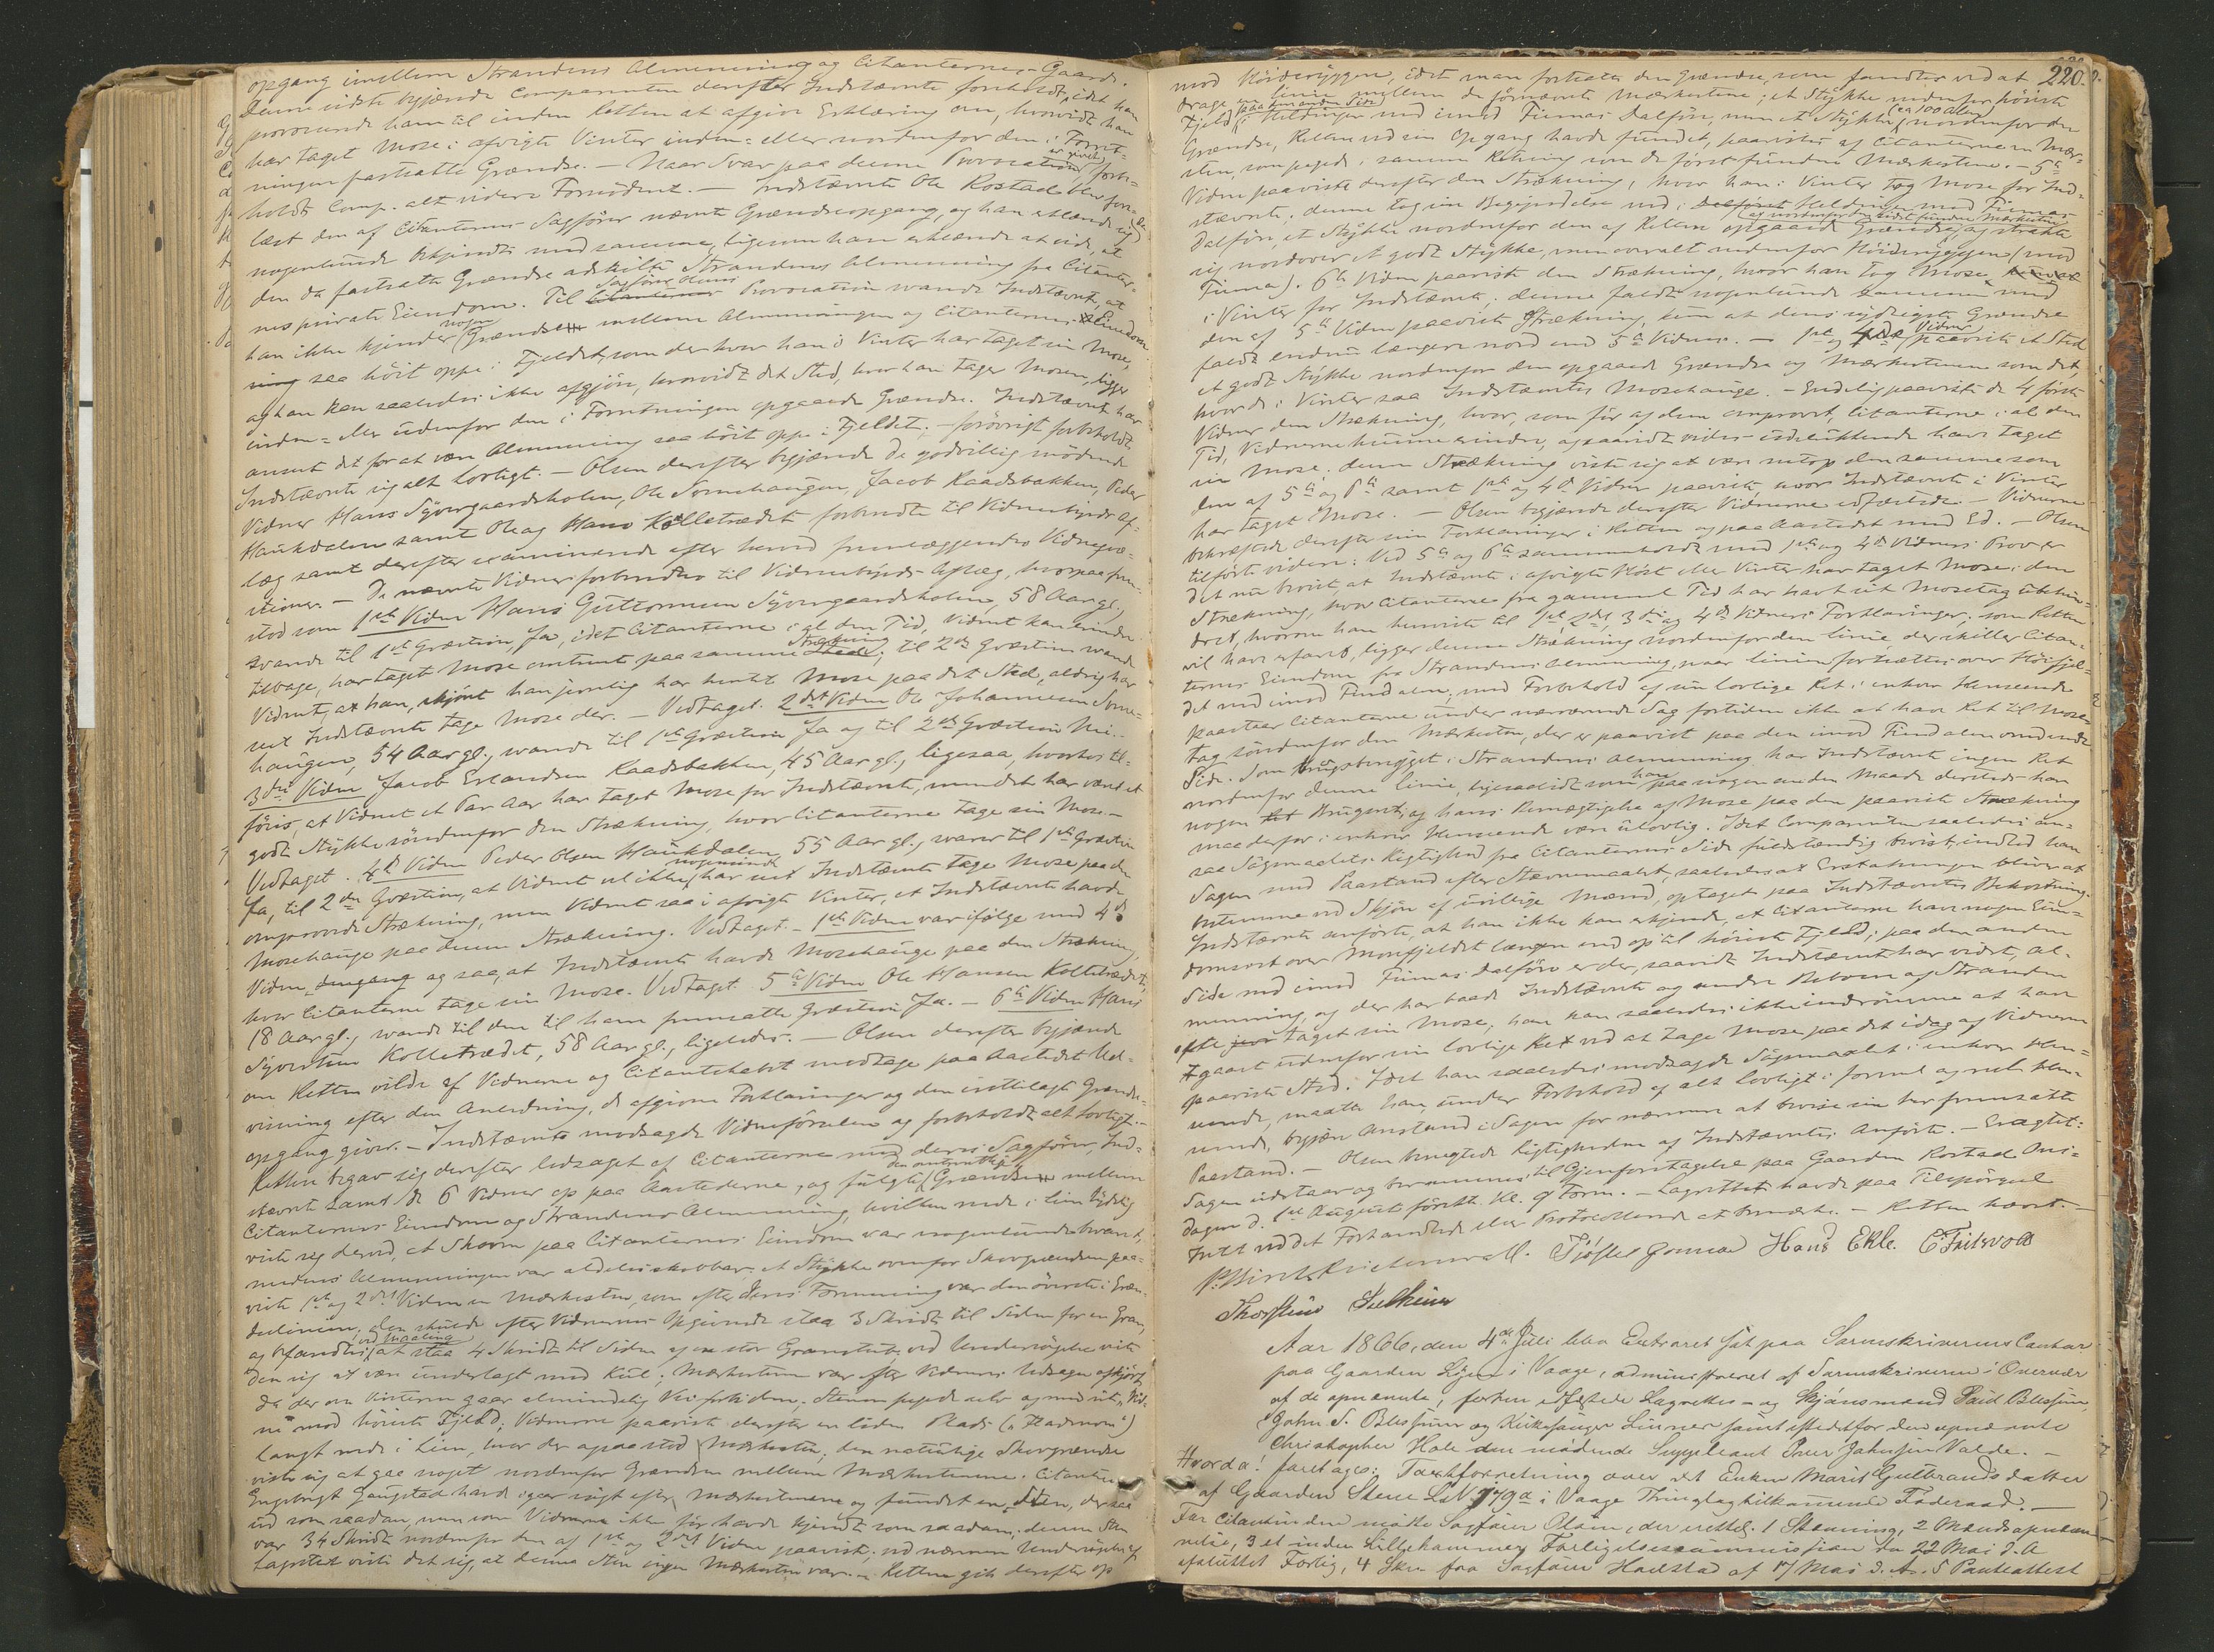 opgang imellem Strandens Almenning og Citanternes Gaarde.
Denne sidste begjærede Comparenten derefter Indstævnte foreholdt, idet han
provocerede ham til inden Retten at afgive Erklæring om, hvorvidt han
har taget Mose i afvigte Vinter inden- eller nordenfor den i Forret-
ningen fastsatte Grændse. — Naar Svar paa denne Provocation er givet, forbe-
holdt Comp. alt videre Fornødent. — Indstævnte Ole Rostad blev fore-
læst den af Citanternes Sagfører nævnte Grændseopgang, og han erklærede sig da
nogenlunde bekjendt med samme, ligesom han erkjendte at vide, at
den da fastsatte Grændse adskilte Strandens Almenning fra Citanter-
nes private Eiendom. Til Sagfører Olsens Provocation svarede Indstævnte, at
han ikke kjender nogen Grændse mellem Almenningen og Citanternes Eiendom
saa høit oppe i Fjeldet, som der hvor han i Vinter har taget sin Mose,
og han kan saaledes ikke afgjøre, hvorvidt det Sted, hvor han tager Mosen, ligger
inden- eller udenfor den i Forretningen opgaaede Grændse. Indstævnte har
anseet det for at være Almenning saa høit oppe i Fjeldet; — forøvrigt forbeholdt
Indstævnte sig alt lovligt. — Olsen derefter begjærede de godvillig mødende
Vidner Hans Syvergaardsholen, Ole Sornehaugen, Jacob Raadsbakken, Peder
Haukdalen samt Ole og Hans Kolletrædet forberedte til Vidnesbyrds Af-
læg samt derefter examinerede efter herved fremlæggendes Vidneqvæ-
stioner. — De nævnte Vidner forberedtes til Vidnesbyrds Aflæg, hvorpaa frem-
stod som 1ste Vidne Hans Guttormsen Syvergaardsholen, 58 Aar gl.,
svarede til 1ste Qvæstion, Ja, idet Citanterne i al den Tid, Vidnet kan erindre
tilbage, har taget Mose omtrent paa samme Strækning; til 2de Qvæstion svarede
Vidnet, at han, skjønt han jevnlig har hentet Mose paa det Sted, aldrig har
seet Indstævnte tage Mose der. — Vedtaget. 2det Vidne Ole Johannesen Sorne-
haugen, 54 Aar gl., svarede til 1ste Qvæstion Ja og til 2de Qvæstion Nei. —
3die Vidne Jacob Erlandsen Raadsbakken, 45 Aar gl., ligesaa, hvorhos til-
føies, at Vidnet et Par Aar har taget Mose for Indstævnte, men det har været et
godt Stykke søndenfor den Strækning, hvor Citanterne tage sin Mose. —
Vedtaget. 4de Vidne Peder Olsen Haukdalen, 55 Aar gl., svarer til 1ste Qvæstion
Ja, til 2den Qvæstion, at Vidnet vel ikke nogensinde har seet Indstævnte tage Mose paa den
omprovede Strækning, men Vidnet saa i afvigte Vinter, at Indstævnte havde
Mosehauge paa denne Strækning. Vedtaget. — 1ste Vidne var ifølge med 4de
Vidne og saa, at Indstævnte havde Mosehauge paa den Strækning,
hvor Citanterne tage sin Mose. Vedtaget. 5te Vidne Ole Hansen Kolletrædet,
18 Aar gl., svarede til den til ham fremsatte Qvæstion Ja. — 6te Vidne Hans
Syvertsen Kolletrædet, 58 Aar gl., ligeledes. — Olsen derefter begjærede
om Retten vilde af Vidnerne og Citantskabet modtage paa Aastedet Ud-
visning efter den Anledning, de afgivne Forklaringer og den irettelagte Grændse-
opgang giver. — Indstævnte modsagde Vidneførselen og forbeholdt alt lovligt. —
Retten begav sig derefter ledsaget af Citanterne med deres Sagfører, Ind-
stævnte samt de 6 Vidner op paa Aastederne, og fulgte den omtvistede Grændse mellem
Citanternes Eiendom og Strandens Almenning, hvilken nede i Lien tydelig
viste sig derved, at Skoven paa Citanternes Eiendom var nogenlunde bevaret,
medens Almenningen var aldeles skovbar. Et Stykke ovenfor Skovgrændsen paa-
viste 1ste og 2det Vidne en Mærkesten, som efter deres Formening var den øverste i Græn-
delinien; den skulde efter Vidnernes Opgivende staa 3 Skridt til Siden for en Gran,
og befandtes ved Maaling at staa 4 Skridt til Siden af en stor Granstub; ved Undersøgelse viste
den sig at være underlagt med Kul; Mærkestenen var efter Vidnernes Udsagn afkjørt,
da der om Vinteren gaar almindelig Vei forbi den; Stenen pegede selv og med sine Vid-
ne mod høieste Fjeld; Vidnerne paaviste derefter en liden Plads ("Pladsmoen")
langt nede i Lien, hvor der ogsaa stod Mærkesten; den naturlige Skovgrændse
viste sig at gaa noget nordenfor Grændsen mellem Mærkestenene. Citanten
Engebrigt Haugstad havde igaar søgt efter Mærkestenene og fundet en Sten, der saa
ud som saadan, men som Vidnerne ikke før havde kjendt som saadan; denne Sten
var 34 Skridt nordenfor den af 1ste og 2det Vidne paaviste; ved nærmere Undersøgelse af
Lagrettet viste det sig, at denne Sten ingen Mærkesten var. — Retten gik derefter op
220.
mod Høiderøggen, idet man fortsatte den Grændse, som fandtes ved at
drage en linie mellem de førnævnte Mærkestene; et Stykke nedenfor høieste
Fjeld paa den anden Side i Heldingen ned imod Finnas Dalføre, men et Stykke (ca 100 Alen) nordenfor den
Grændse, Retten ved sin Opgang havde fundet, paavistes af Citanterne en Mær-
sten, som pegede i samme Retning som de først fundne Mærkestene. — 5te
Vidne paaviste derefter den Strækning, hvor han i Vinter tog Mose for Ind-
stævnte; denne tog sin Begyndelse ved i Heldingen mod Finnas
Dalføre, et Stykke nordenfor den af Retten opgaaede Grændse og nordenfor den sidst fundne Mærkesten, og strakte
sig nordover et godt Stykke, men overalt nedenfor Høiderøggen (mod
Finna). 6te Vidne paaviste den Strækning, hvor han tog Mose
i Vinter for Indstævnte; denne faldt nogenlunde sammen med
den af 5te Vidne paaviste Strækning, kun at dens sydligste Grændse
faldt endnu længere nord end 5te Vidnes. — 1ste og 4de Vidner paaviste et Sted
et godt Stykke nordenfor den opgaaede Grændse og Mærkestenene som det,
hvor de i Vinter saa Indstævntes Mosehauge. — Endelig paaviste de 4 første
Vidner den Strækning, hvor, som før af dem omprovet, Citanterne i al den
Tid, Vidnerne kunne erindre, og saavidt vides udelukkende have taget
sin Mose; denne Strækning viste sig at være netop den samme som
den af 5te og 6te samt 1ste og 4de Vidner paaviste, hvor Indstævnte i Vinter
har taget Mose. — Olsen begjærede derefter Vidnerne edfæstede. — Vidnerne
bekræftede derefter sine Forklaringer i Retten og paa Aastedet med Ed. — Olsen
tilførte videre: Ved 5te og 6te sammenholdt med 1ste og 4de Vidners Prov er
det nu bevist, at Indstævnte i afvigte Høst eller Vinter har taget Mose i den
Strækning, hvor Citanterne fra gammel Tid har havt sit Mosetag ubehin-
dret, hvorom han henviste til 1ste, 2det, 3die og 4de Vidners Forklaringer; som Retten
vil have erfaret, ligger denne Strækning nordenfor den linie, der skiller Citan-
ternes Eiendom fra Strandens Almenning, naar linien fortsættes over Høifjel-
det ned imod Findalen; med Forbehold af sin lovlige Ret i enhver Henseende
paastaar Citanterne under nærværende Sag fortiden ikke at have Ret til Mose-
tag søndenfor den Mærkesten, der er paavist paa den imod Findalen vendende
Side. Som brugsberettiget i Strandens Almenning har Indstævnte ingen Ret
nordenfor denne linie, ligesaalidt som han paa nogen anden Maade dersteds har
nogen Brugsret, og hans Bemægtigelse af Mose paa den paaviste Strækning
maa derfor i enhver Henseende være ulovlig. Idet Comparenten saaledes an-
saa Søgsmaalets Rigtighed fra Citanternes Side fuldstændig bevist, indlod han
Sagen med Paastand efter Stævnemaalet, saaledes at Erstatningen bliver at
bestemme ved Skjøn af uvillige Mænd, optaget paa Indstævntes Bekostning.
Indstævnte anførte, at han ikke kan erkjende, at Citanterne have nogen Eien-
domsret over Mosefjeldet længere end op til høieste Fjeld; paa den anden
Side ned imod Finnas Dalføre er der, saavidt Indstævnte har vidst, Al-
menning, og der har baade Indstævnte og andre Beboere af Stranden
ofte taget sin Mose; han kan saaledes ikke indrømme at have
gaaet udenfor sin lovlige Ret ved at tage Mose paa det idag af Vidnerne
paaviste Sted. Idet han saaledes modsagde Søgsmaalet i enhver Hen-
seende, maatte han, under Forbehold af alt lovligt i formel og reel Hen-
seende, begjære Anstand i Sagen for nærmere at bevise sin her fremsatte
Paastand. — Olsen benegtede Rigtigheden af Indstævntes Anførte. — Eragtet:
Sagen udstaar og berammes til Gjenforetagelse paa Gaarden Rostad Ons-
dagen d. 1ste August førstk. Kl. 9 Form. — Lagrettet havde paa Tilspørgsel
Intet ved det Forhandlede eller Protocollerede at bemærke. — Retten hævet. —
Hans Ekle.
Aar 1866, den 4de Juli blev Extraret sat paa Sorenskriverens Contor
paa Gaarden i Vaage, administreret af Sorenskriveren i Overvær
af de opnævnte, forhen edfæstede Lagrettes- og Skjønsmænd Blessum
John S. Blessum og Kirkesanger samt istedetfor den opnævnte
Christopher Hole den mødende Suppleant Iver Johnsen Valde. —
Hvorda! foretages: Taxtforretning over det Enken Marit Guldbrandsdatter
af Gaarden Skene L.N. 179a i Vaage Thinglag tilkommende Føderaad. —
For Citantinden mødte Sagfører Olsen, der irettel. 1 Stævning, 2 Mændsopnæv-
nelse, 3 et inden Lillehammers Forligelsescommission den 22 Mai d. A.
afsluttet Forlig, 4 Skr. fra Sagfører Hoelstad af 17 Mai d. A. 5 Panteattest